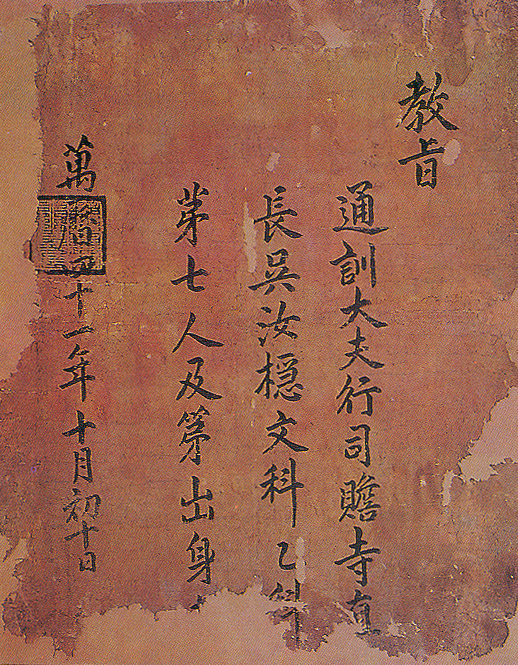 教旨
通訓大夫行司贍寺直
長吳汝檼文科乙科
第七人及第出身
萬曆四十一年十月初十日